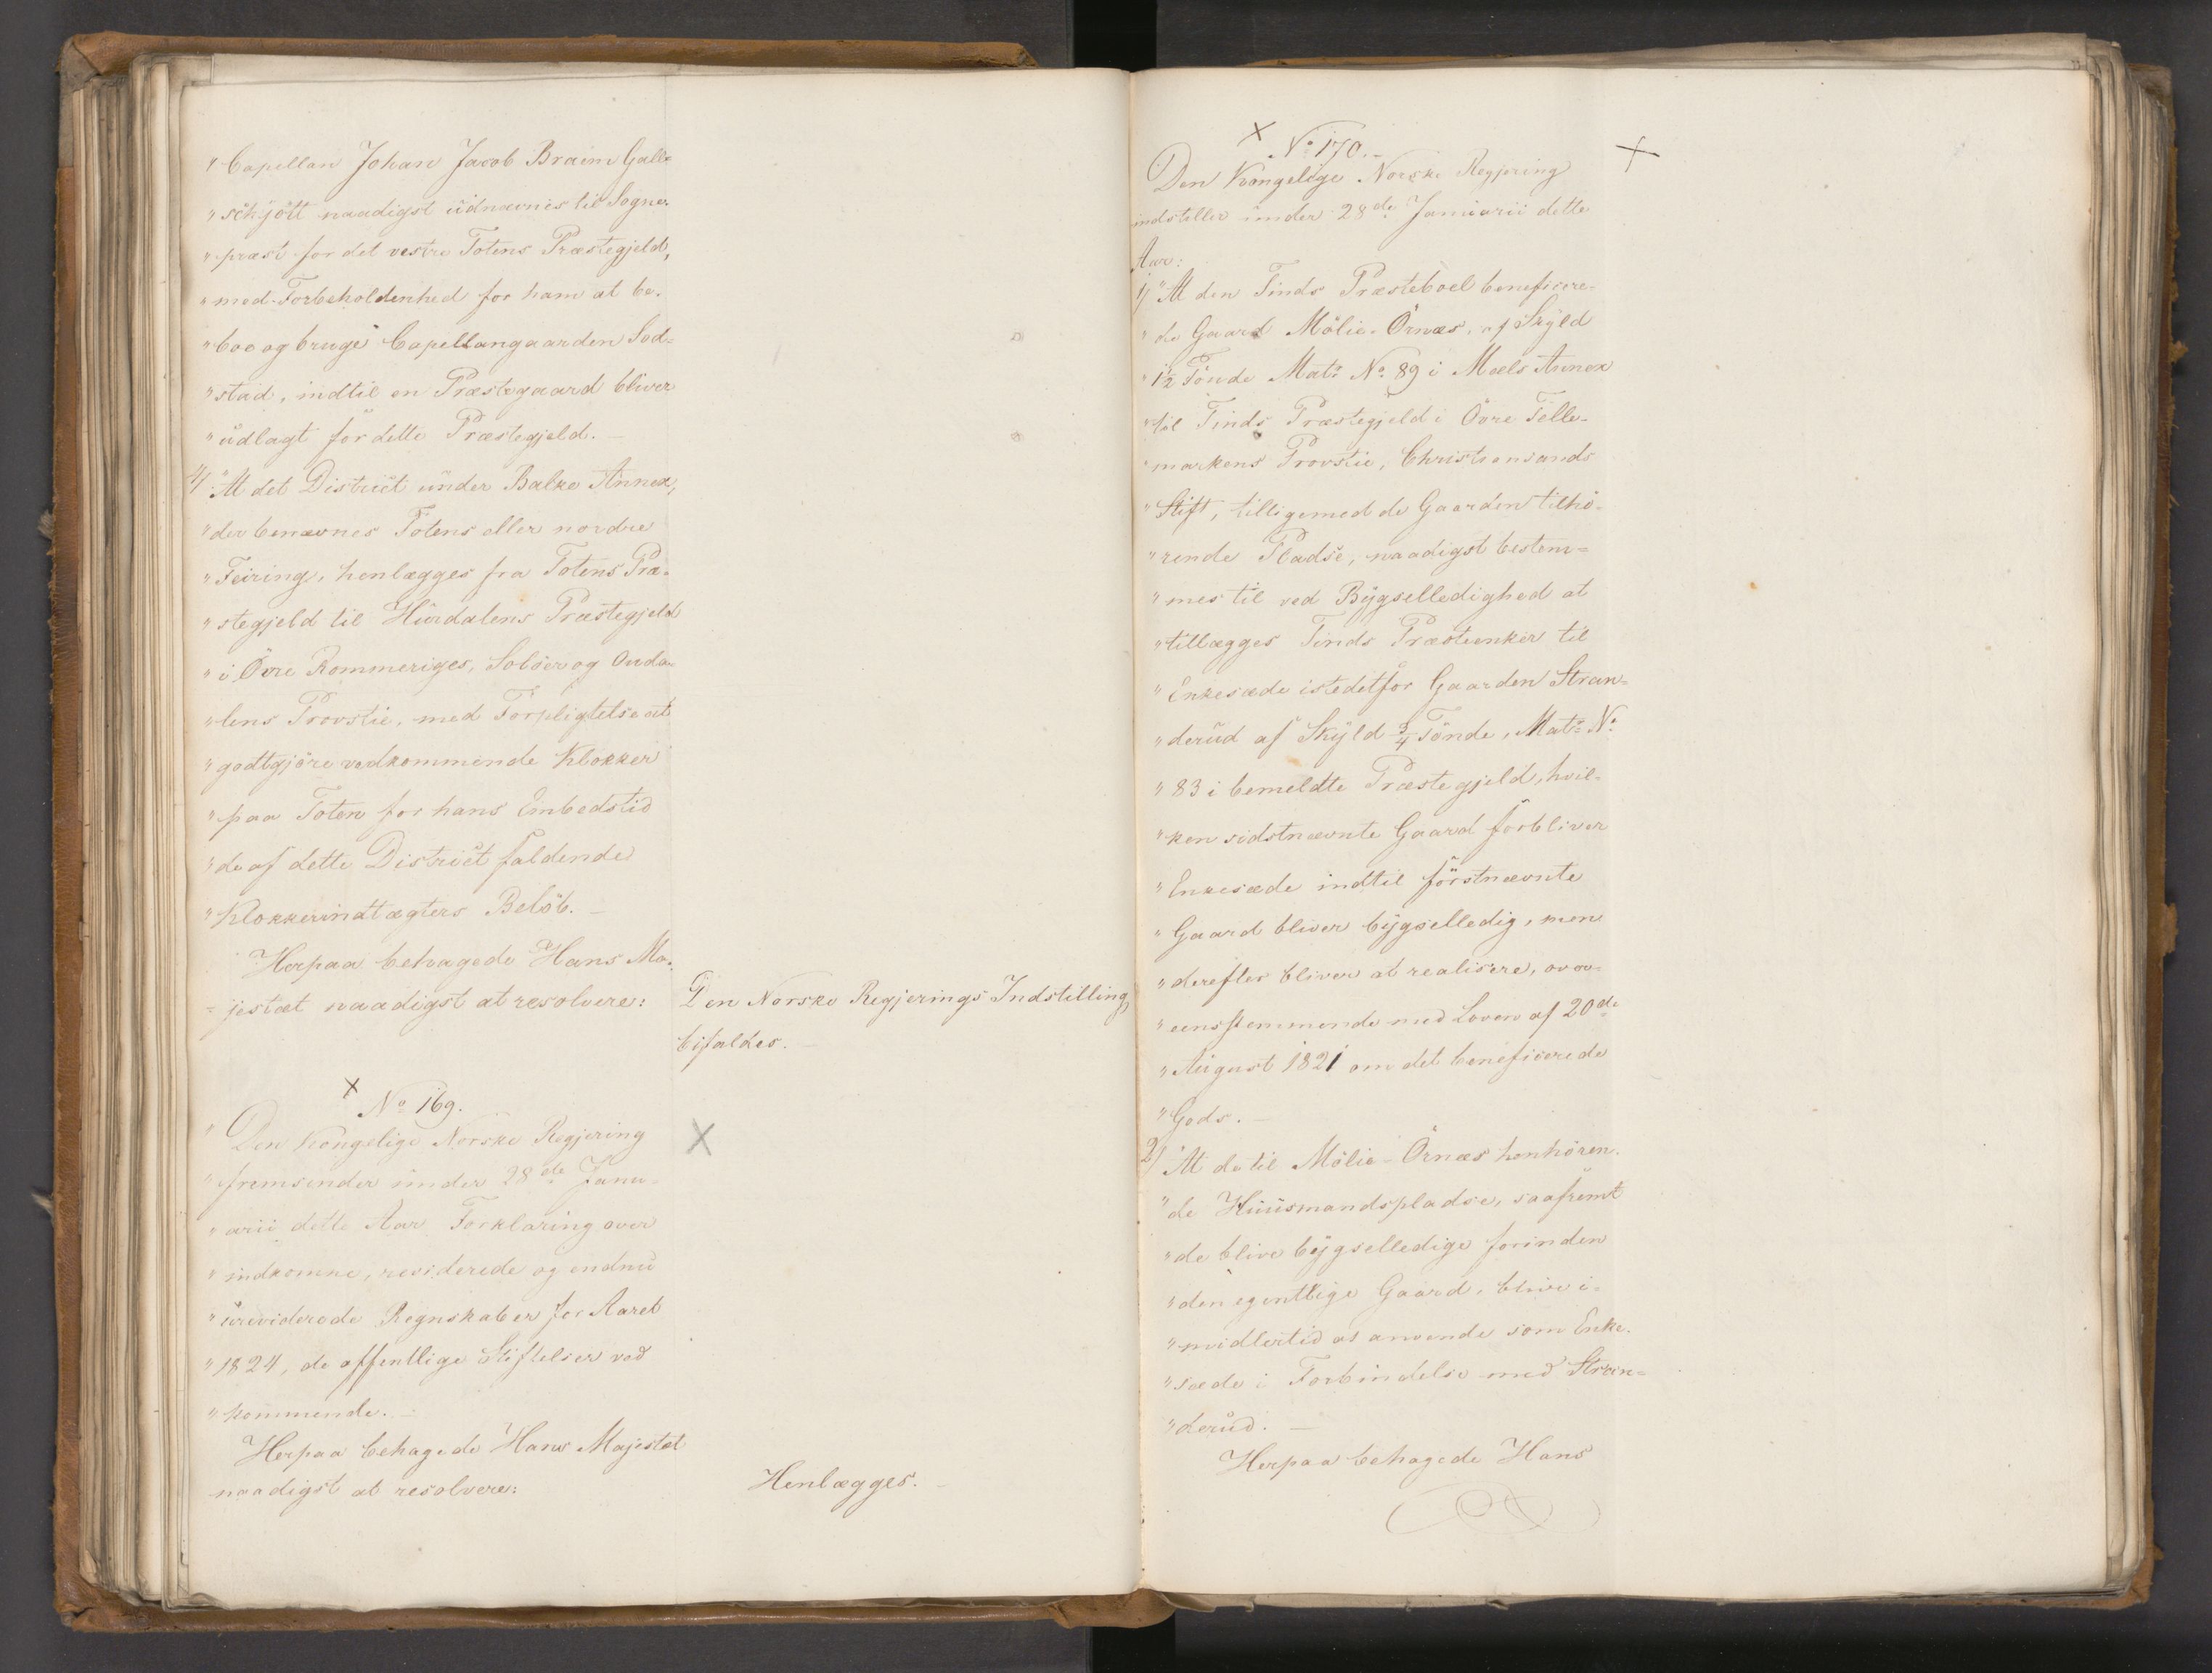 "Capellan Johan Jacob Braim Galle
"schjött naadigst udnævnes til Sogne-
"præst for det vestre Totens Præstegjeld,
"med Forbeholdenhed for ham at be-
"boe og bruge Capellangaarden Sod-
"stad, indtil en Præstegaard bliver
"udlagt for dette Præstegjeld. —
4/ "At det District under Balke Annex,
"der benævnes Totens eller nordre
"Feiring, henlægges fra Totens Præ-
"stegjeld til Hurdalens Præstegjeld
"i Övre Rommeriges, Solöer og Ouda-
"lens Provstie, med Forpligtelse at
"godtgjöre vedkommende Klokker
"paa Toten for hans Embedstid
"de af dette District faldende
"Klokkerindtægters Belöb. —
Herpaa behagede Hans Ma-
=jestæt naadigst at resolvere:
Den Norske Regjerings Indstilling
bifaldes. —
No 169.
"Den Kongelige Norske Regjering
"fremsender under 28de Janu-
"arii dette Aar Forklaring over
"indkomne, reviderede og endnu
"ureviderede Regnskaber for Aaret
"1824, de offentlige Stiftelser ved
"kommende. —
Herpaa behagede Hans Majestæt
naadigst at resolvere:
Henlægges. —
No 170. —
Den Kongelige Norske Regjering
indstiller under 28de Januarii dette
Aar:
1/ "At den Tinds Præsteboel beneficere-
"de Gaard Mölie-Örnæs, af Skyld
"1½ Tönde Matr: No 89 i Mæls Annex
"til Tinds Præstegjeld i Övre Telle-
"markens Provstie, Christiansands
"Stift, tilligemed de Gaarden tilhö-
"rende Pladse, naadigst bestem=
"mes til ved Bygselledighed at
"tillægges Tinds Præsteenker til
"Enkesæde istedetfor Gaarden Stran=
"derud af Skyld ¾ Tönde, Matr: No
"83 i bemeldte Præstegjeld, hvil-
"ken sidstnævnte Gaard forbliver
"Enkesæde indtil förstnævnte
"Gaard bliver bygselledig, men
"derefter bliver at realisere, over-
"eensstemmende med Loven af 20de
"August 1821 om det beneficerede
"Gods. —
2/ "At de til Mölie-Örnæs henhören-
"de Huusmandspladse, saafremt
"de blive bygselledige forinden
"den egentlige Gaard, blive i-
"midlertid at anvende som Enke-
"sæde i Forbindelse med Stran=
"derud. —
Herpaa behagede Hans